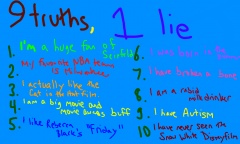 9 truths, 1 lie
1. I'm a huge fan of Seinfeld
2. My favorite NBA team is
3. I actually like the Cat in the Hat film.
4. I am a big movie and movie songs buff
5. I like Rebecca Black's "Friday"
6. I was born in the
7. I have broken a bone
8. I am a rabid milk drinker
9. I have Autism
10. I have never seen the Snow White Disney film